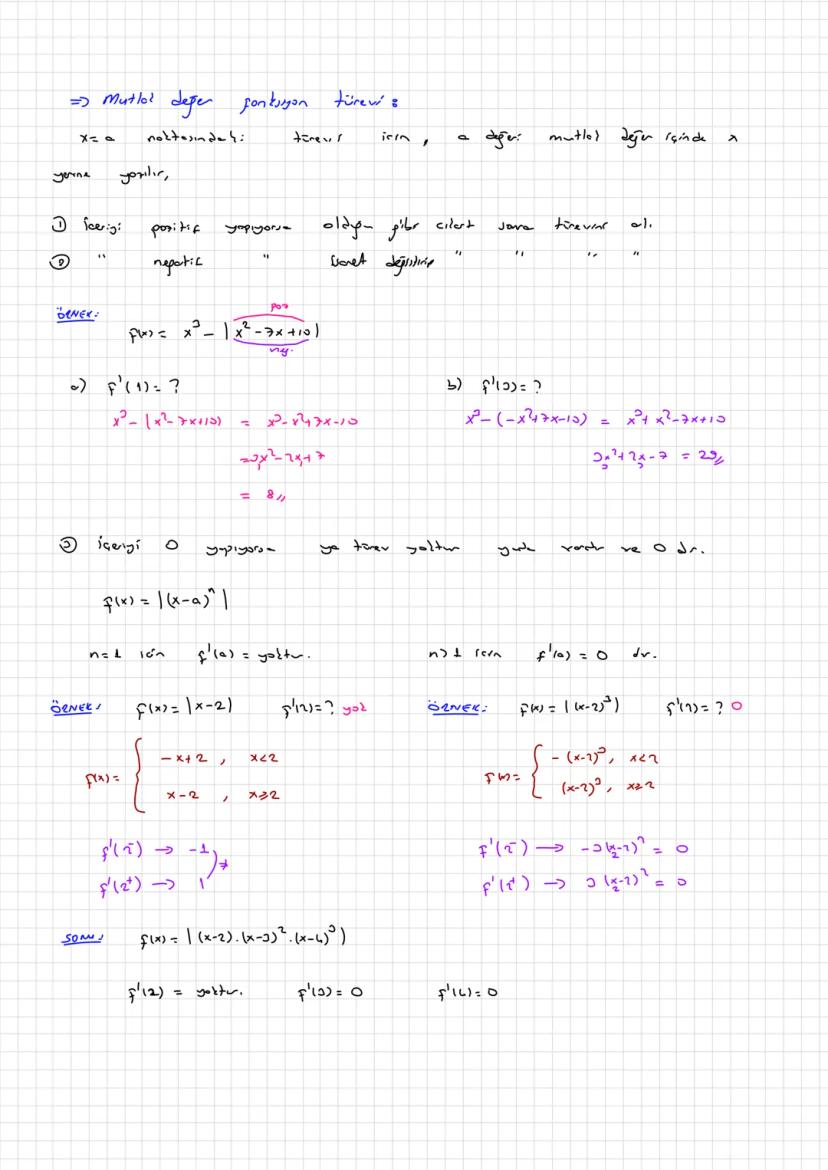 => Mutlak değer fonksiyon türevi :
x = a noktasındaki türevi için , a değeri mutlak değer içinde x
yerine yazılır,
① İçeriği pozitif yapıyorsa olduğu gibi çıkart sonra türevini al.
② " negatif " işaret değiştirip " " " "
ÖRNEK:
poz
f(x) = x³ - |x² - 7x + 10|
neg.
a) f'(1) = ? b) f'(3) = ?
x³ - (x² - 7x + 10) = x³ - x² + 7x - 10 x³ - (-x² + 7x - 10) = x³ + x² - 7x + 10
= 3x² - 2x + 7 3x² + 2x - 7 = 26
= 8
③ İçeriği 0 yapıyorsa ya türev yoktur ya da vardır ve 0 dır.
f(x) = |(x-a)ⁿ|
n = 1 için f'(a) = yoktur. n > 1 için f'(a) = 0 dır.
ÖRNEK: f(x) = |x-2| f'(2) = ? yok ÖRNEK: f(x) = |(x-2)³| f'(2) = ? 0
f(x) = { -x+2 , x<2 f(x) = { -(x-2)³ , x<2
x-2 , x≥2 (x-2)³ , x≥2
f'(2⁻) → -1 f'(2⁻) → -3(x-2)² = 0
≠ 2
f'(2⁺) → 1 f'(2⁺) → 3(x-2)² = 0
2
SORU: f(x) = |(x-2).(x-3)².(x-4)³|
f'(2) = yoktur. f'(3) = 0 f'(4) = 0